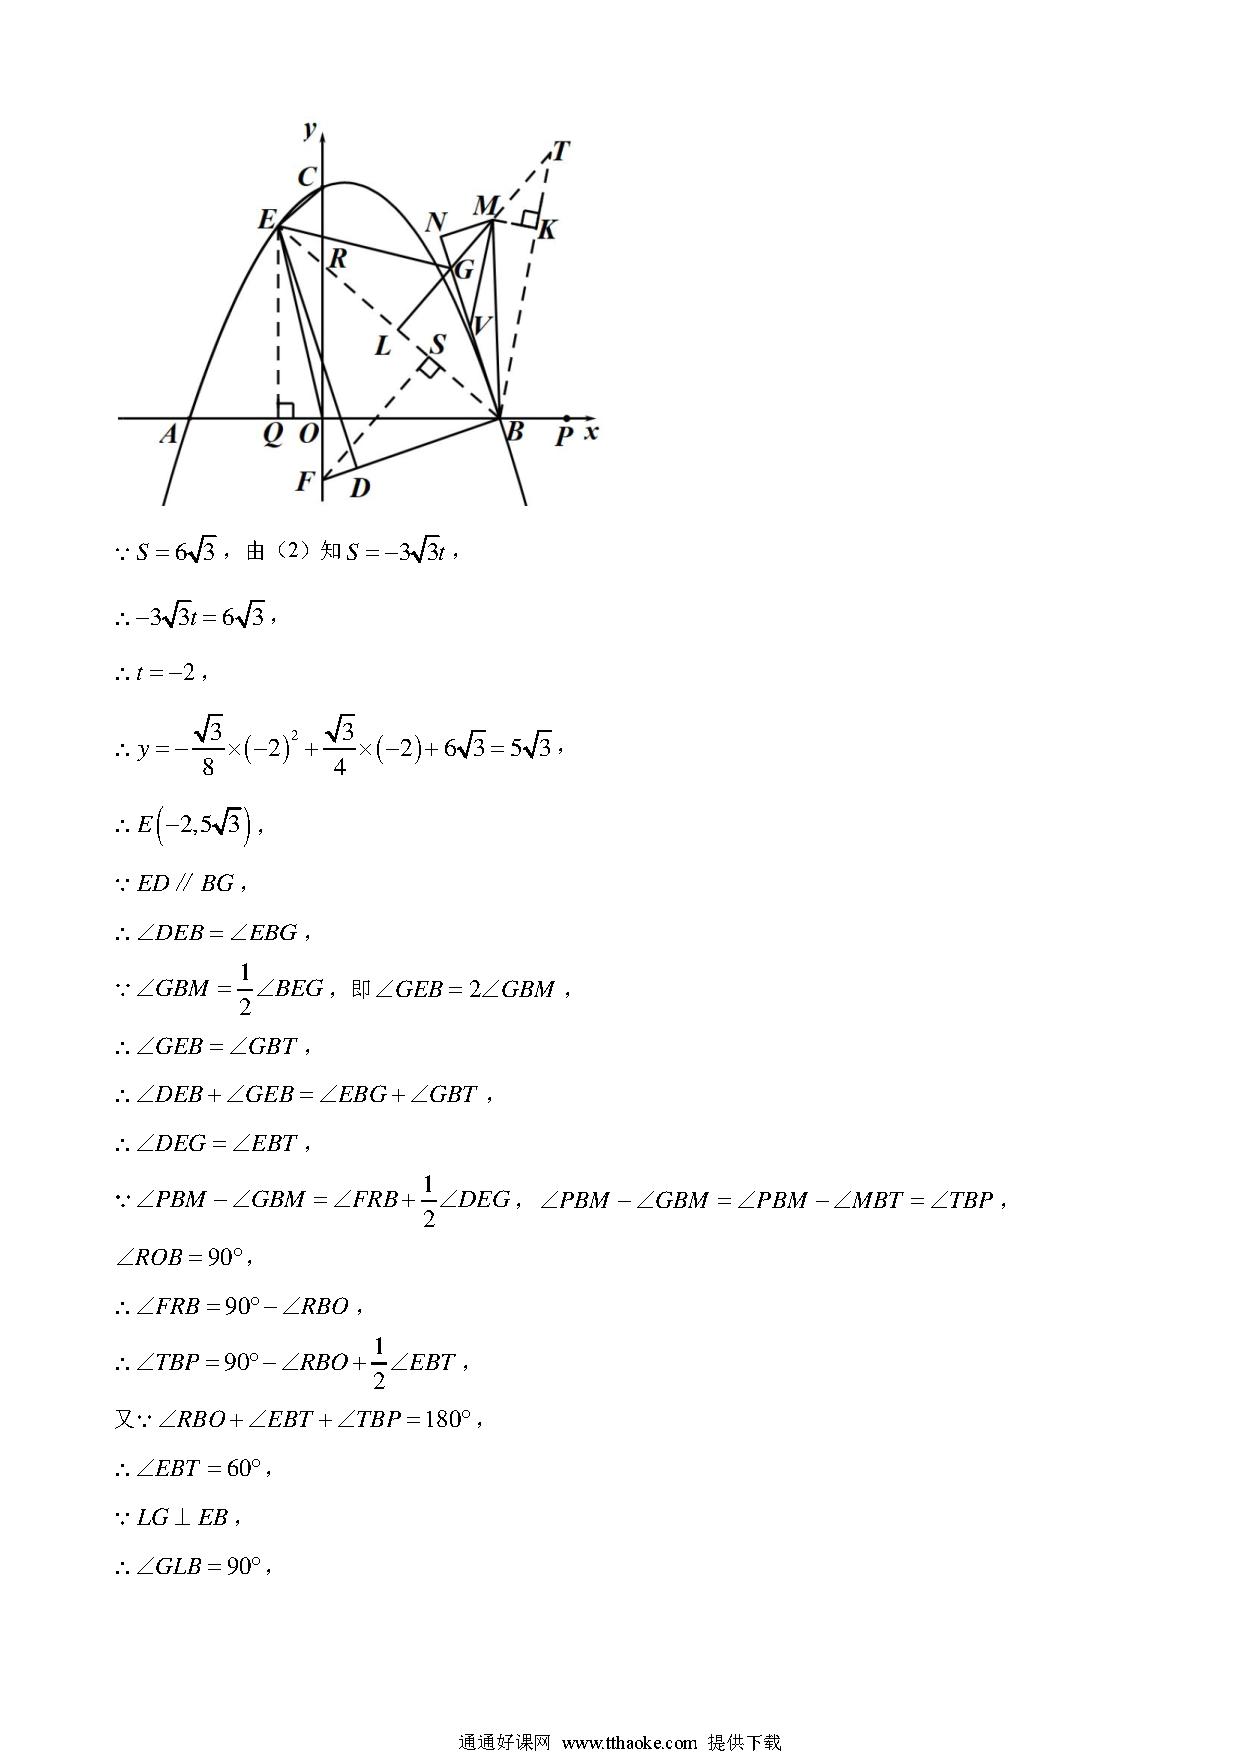 y
T
C
E
N
M
K
R
G
V
L
S
A
Q
O
B
P
x
F
D
∵S=6√3，由（2）知S=−3√3t，
∴−3√3t=6√3，
∴t=−2，
∴y=−√3/8×(−2)²+√3/4×(−2)+6√3=5√3，
∴E(−2,5√3)，
∵ED∥BG，
∴∠DEB=∠EBG，
∵∠GBM=1/2∠BEG，即∠GEB=2∠GBM，
∴∠GEB=∠GBT，
∴∠DEB+∠GEB=∠EBG+∠GBT，
∴∠DEG=∠EBT，
∵∠PBM−∠GBM=∠FRB+1/2∠DEG，∠PBM−∠GBM=∠PBM−∠MBT=∠TBP，
∠ROB=90°，
∴∠FRB=90°−∠RBO，
∴∠TBP=90°−∠RBO+1/2∠EBT，
又∵∠RBO+∠EBT+∠TBP=180°，
∴∠EBT=60°，
∵LG⊥EB，
∴∠GLB=90°，
通通好课网 www.tthaoke.com 提供下载